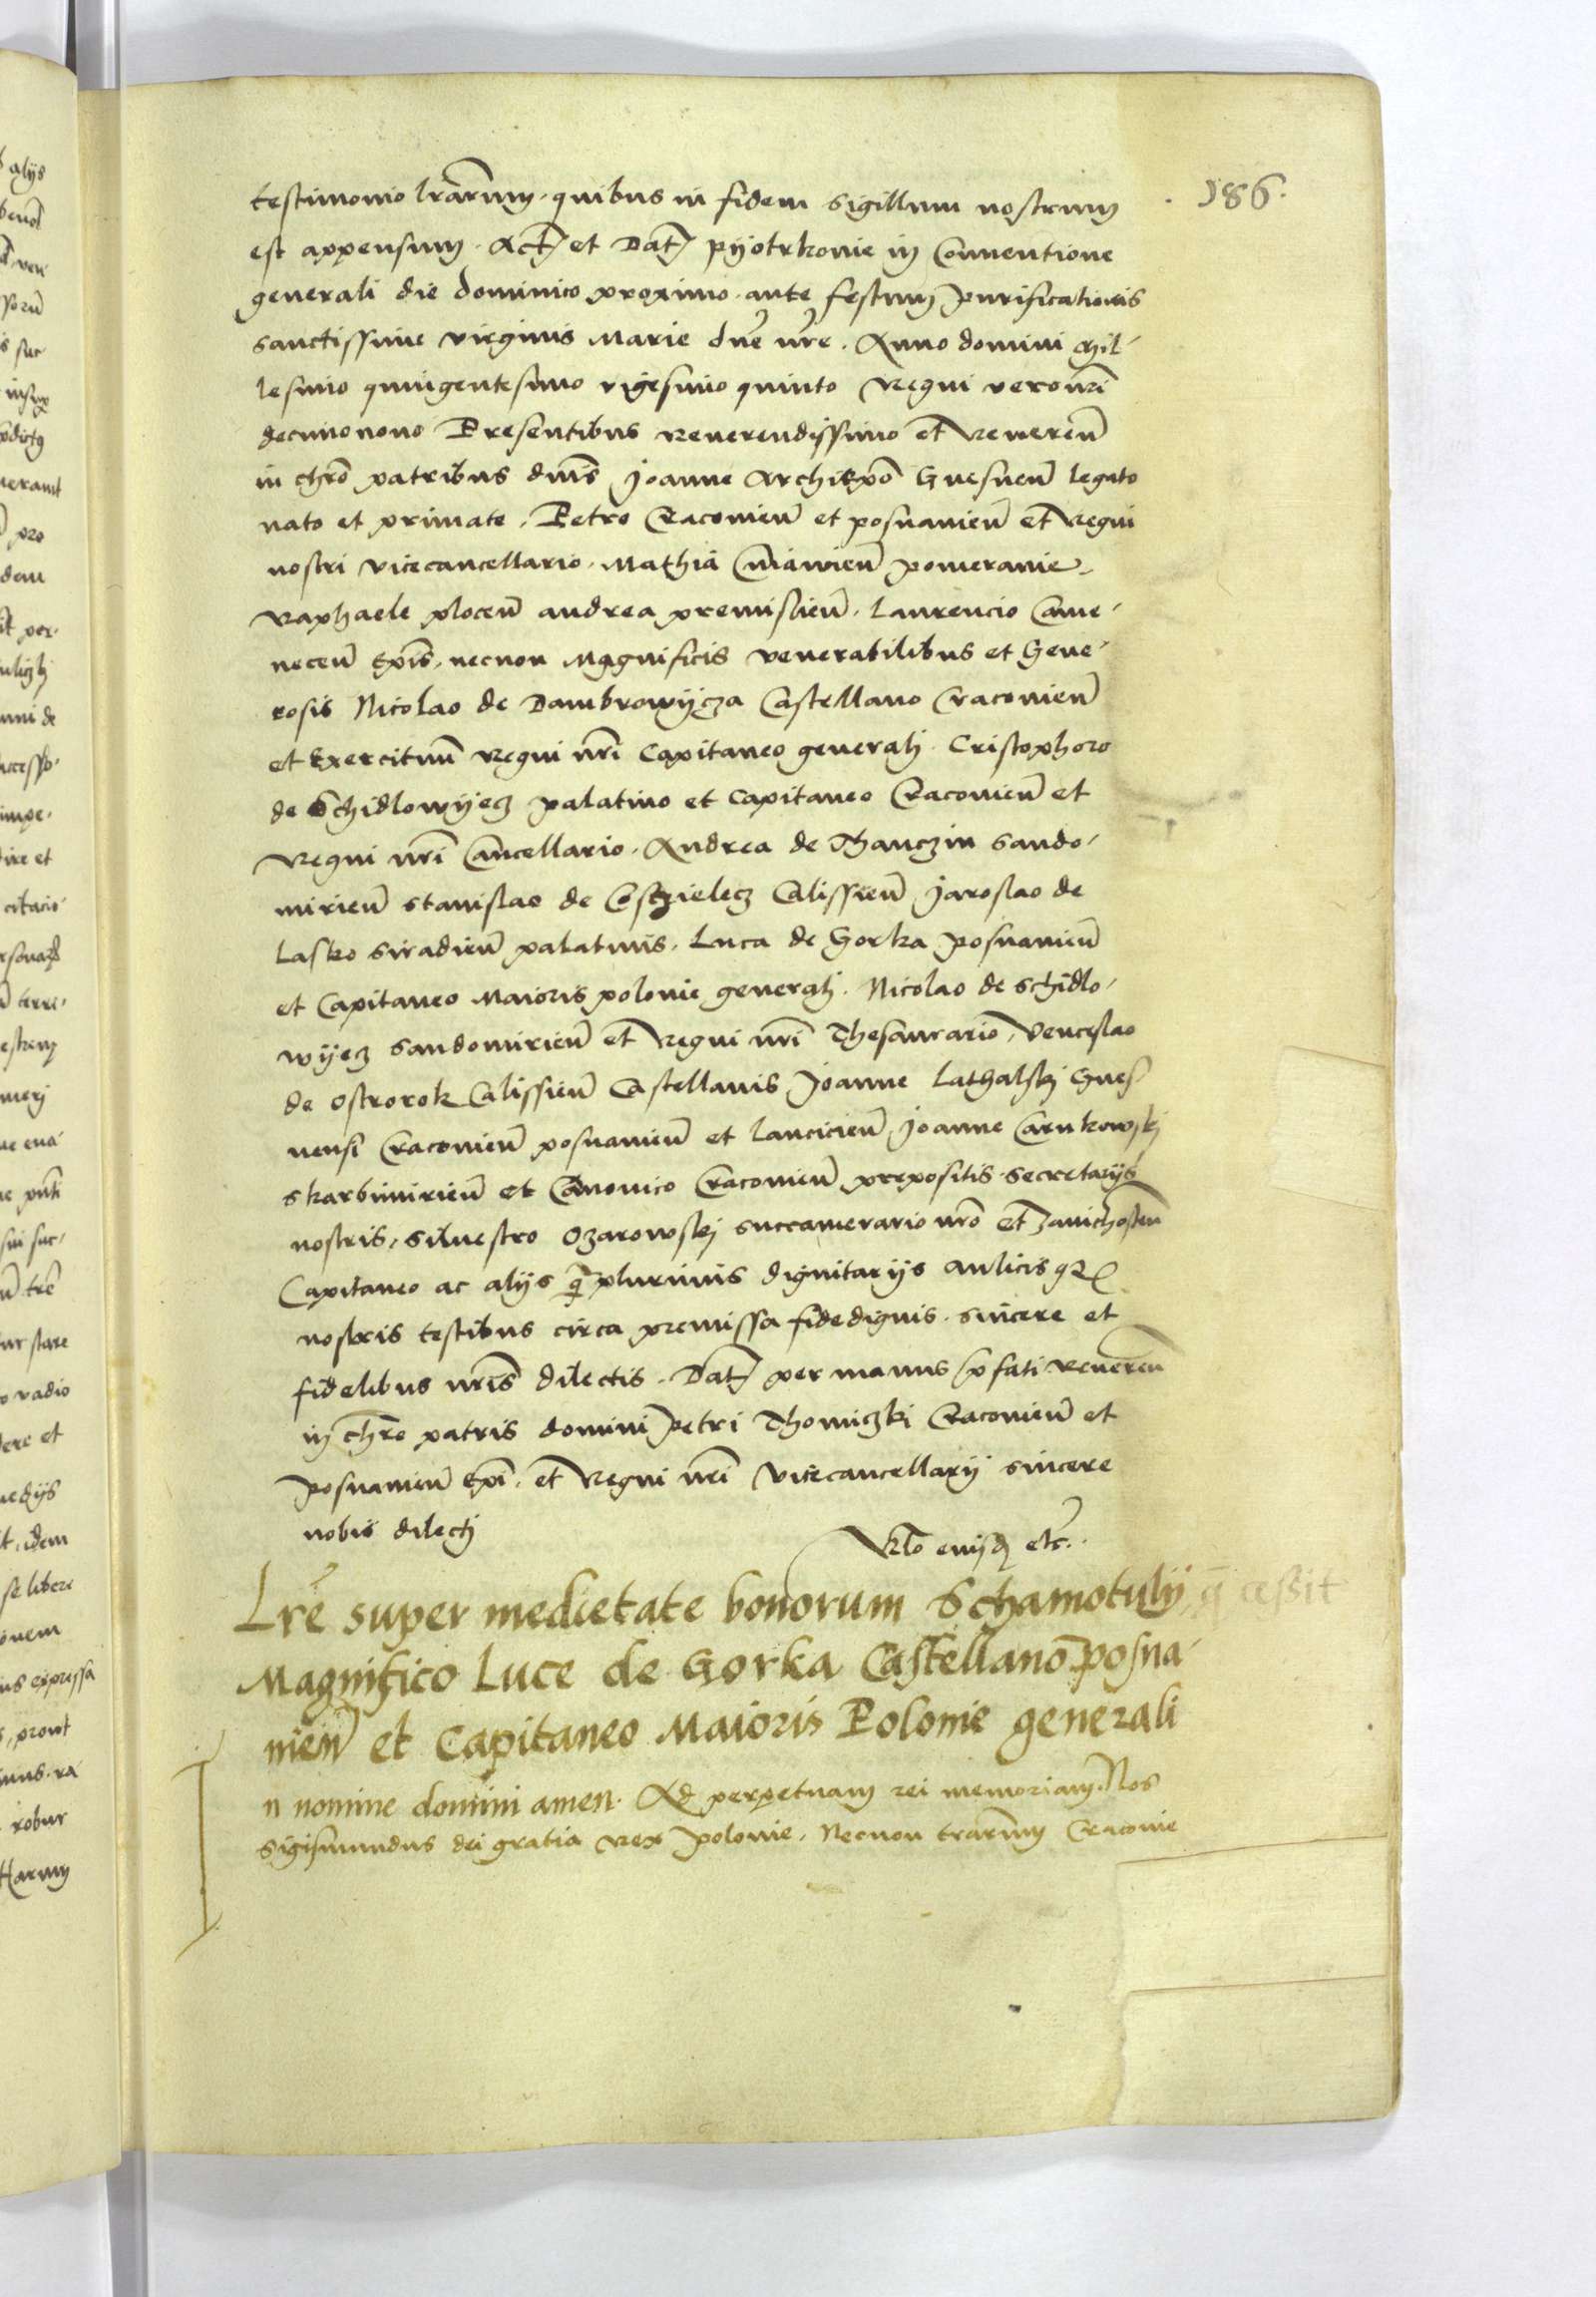 186.
testimonio lrarum. quibus in fidem sigillum nostrum
est appensum. Act et Dat pyotrkovie in Conventione
generali die dominico proximo ante festum purificationis
sanctissime virginis Marie dne nre. Anno domini Mil-
lesimo quingentesimo vigesimo quinto Regni vero nri
decimonono Presentibus reverendissimo et Reveren
in chro patribus dnis Joanne Archiepo Gnesnen legato
nato et primate, Petro Cracovien et posnanien et Regni
nostri vicecancellario, Mathia Cuiavien pomeranie
Raphaele plocen andrea premislien, Laurencio Came-
necen Epis, necnon Magnificis venerabilibus et Gene-
rosis Nicolao de Dambrowycza Castellano Cracovien
et Exercituum Regni nri Capitaneo generali. Cristophoro
de Schidlowyecz palatino et capitaneo Cracovien et
Regni nri Cancellario. Andrea de Thanczin Sando-
mirien Stanislao de Costzielecz Calissien Jaroslao de
Lasko siradien palatinis, Luca de Gorka posnanien
et Capitaneo Maioris polonie generali. Nicolao de Schidlo-
wyecz Sandomirien et Regni nri Thesaurario, Venceslao
de Ostrorok Calissien Castellanis Joanne Lathalski Gnes-
nensi Cracovien posnanien et lancicien, Joanne Carnkowski
skarbimirien et Canonico Cracovien prepositis secretarys
nostris, silvestro Ozarowski succamerario nro et Zavichosten
Capitaneo ac alys q plurimis dignitarys aulicis
nostris testibus circa premissa fidedignis. sincere et
fidelibus nris dilectis. Dat per manus pfati Reveren
in chro patris domini Petri Thomiczki Cracovien et
posnanien Epi, et Regni nri vicecancellarij sincere
nobis dilecti
Rlo eiusd etc.
Lre super medietate bonorum Schamotuly, q cessit
Magnifico Luce de Gorka Castellano posna-
nien et Capitaneo Maioris Polonie generali
n nomine domini amen. Ad perpetuam rei memoriam. Nos
Sigismundus dei gratia rex polonie, necnon trarum Cracovie